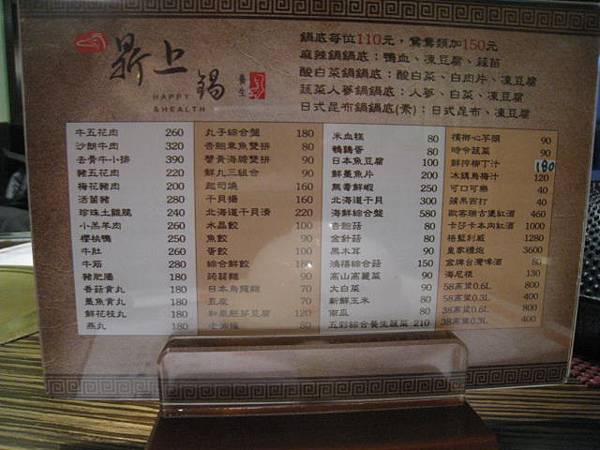 鼎上鍋
養生
HAPPY
&HEALTH
鍋底每位110元，鴛鴦類加150元
麻辣鍋鍋底：鴨血、凍豆腐、蒜苗
酸白菜鍋鍋底：酸白菜、白肉片、凍豆腐
蔬菜人蔘鍋鍋底：人蔘、白菜、凍豆腐
日式昆布鍋鍋底(素)：日式昆布、凍豆腐
牛五花肉 260
沙朗牛肉 320
去骨牛小排 390
豬五花肉 220
梅花豬肉 200
活菌豬 280
珍珠土雞腿 240
小羔羊肉 260
櫻桃鴨 250
牛肚 260
牛筋 280
豬肥腸 180
香菇貢丸 180
墨魚貢丸 180
鮮花枝丸 180
燕丸 180
丸子綜合盤 180
杏鮑章魚雙拼 80
蟹黃海膽雙拼 90
鮮九三組合 90
起司燒 160
干貝燒 160
北海道干貝湯 220
水晶餃 100
魚餃 90
蛋餃 100
綜合鮮餃 150
蒟蒻麵 90
日本烏龍麵 70
豆皮 70
和風胚芽豆腐 120
老油條 80
米血糕 80
鵪鶉蛋 80
日本魚豆腐 100
鮮墨魚片 200
無毒鮮蝦 350
北海道干貝 300
海鮮綜合盤 580
杏鮑菇 80
金針菇 80
黑木耳 90
鴻禧綜合菇 150
高山高麗菜 90
大白菜 90
新鮮玉米 80
南瓜 80
五彩綜合養生蔬菜 210
檳榔心芋頭 90
時令蔬菜 90
鮮搾柳丁汁 180
冰鎮烏梅汁 120
可口可樂 40
蘋果西打 40
歐客瑞古堡紅酒 460
卡莎卡本內紅酒 1000
格藍利威 1280
皇家禮炮 3600
金牌台灣啤酒 60
海尼根 130
58高粱0.6L 800
58高粱0.3L 400
38高粱0.6L 800
38高粱0.3L 400